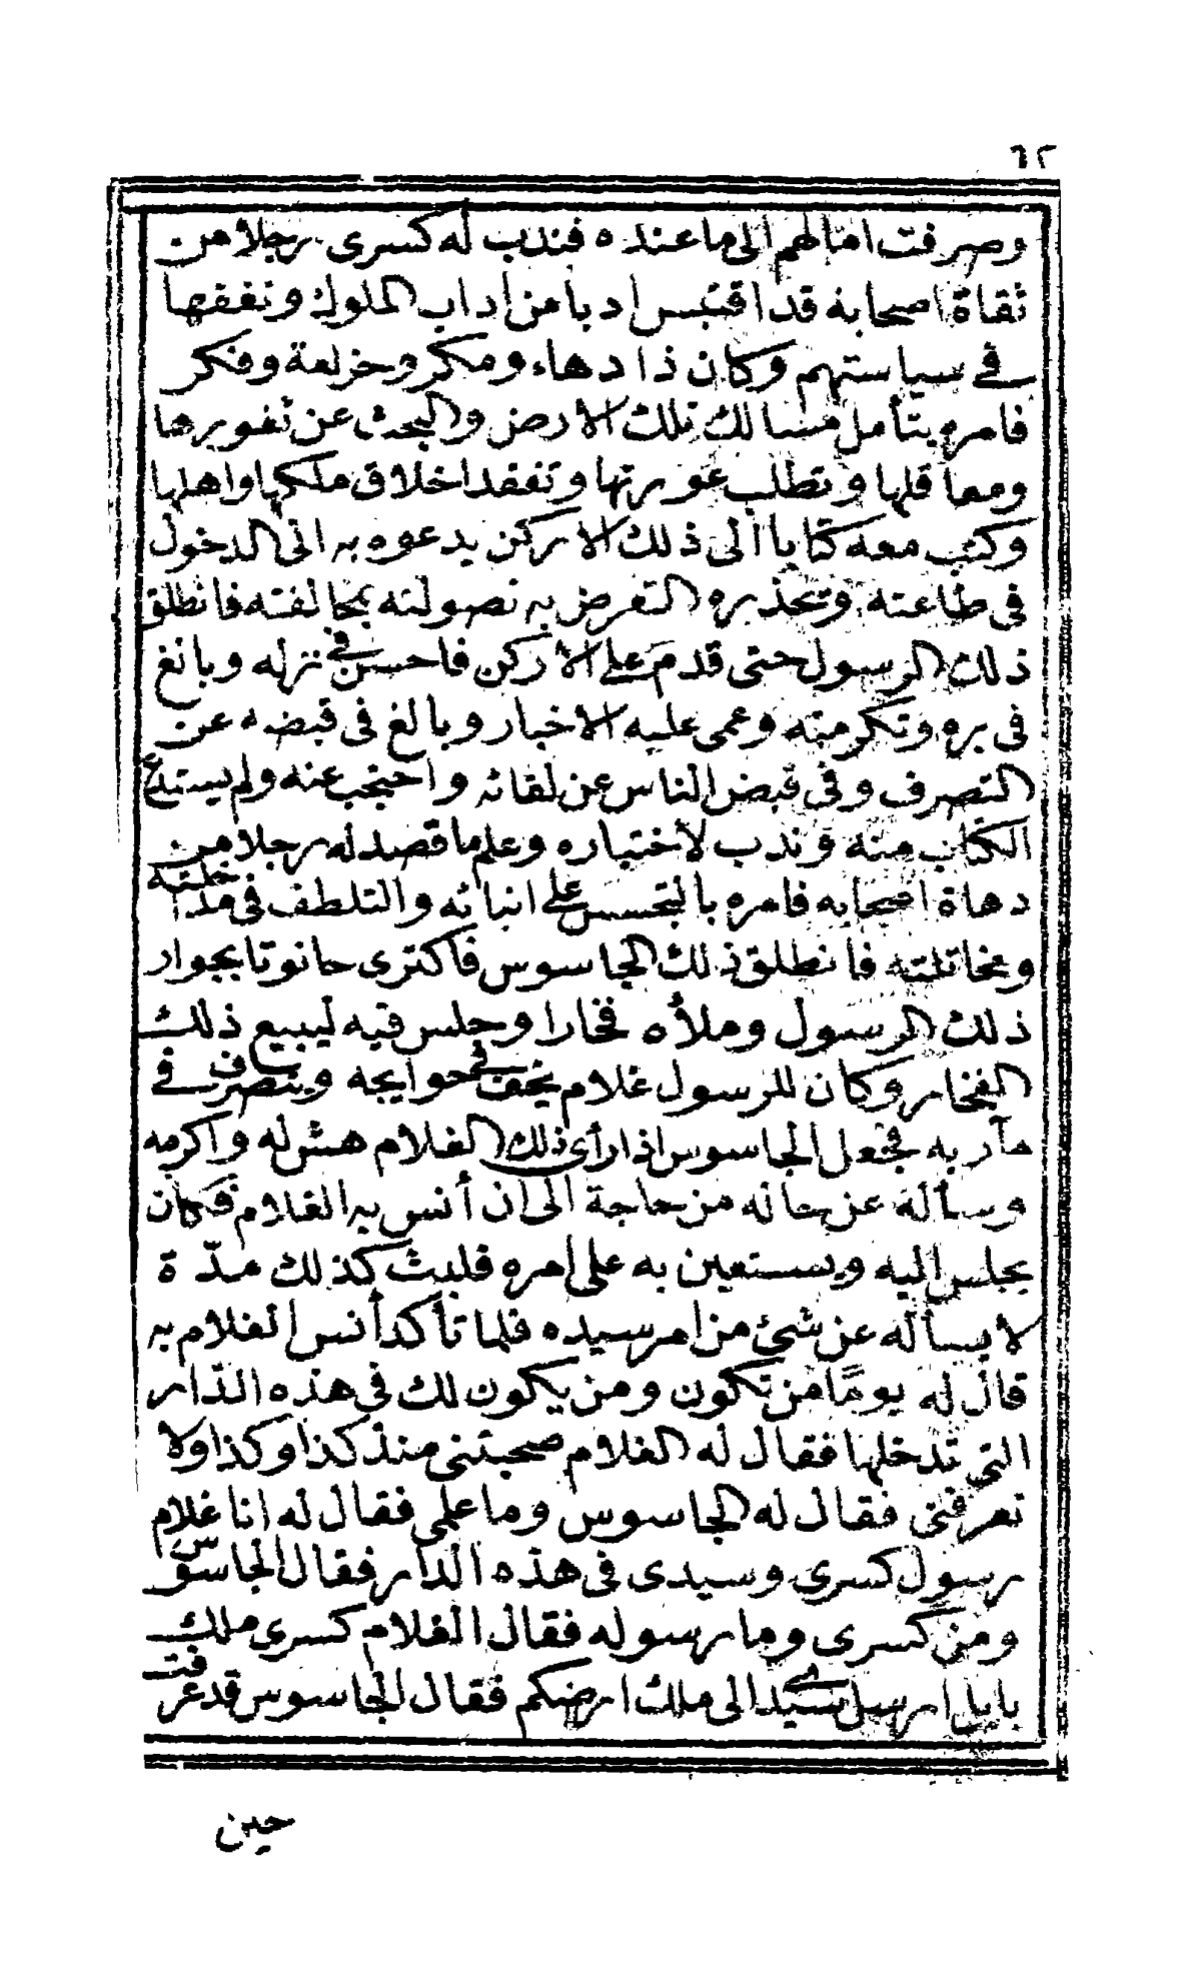 ٦٢
وصرفت امالهم الى ما عنده فندب له كسرى رجلا من
ثقاة اصحابه قد اقتبس ادبا من اداب الملوك وتفقها
في سياستهم وكان ذا دهاء ومكر وخزلعة وفكر
فامره بتأمل مسالك تلك الارض والبحث عن ثغورها
ومعاقلها وتطلب عورتها وتفقد اخلاق ملكها واهلها
وكتب معه كتابا الى ذلك الاركن يدعوه به الى الدخول
في طاعته ويحذره التعرض به لصولته بمخالفته فانطلق
ذلك الرسول حتى قدم على الاركن فاحسن في نزله وبالغ
في بره وتكرمته وعمى عليه الاخبار وبالغ في قبضه عن
التصرف وفي قبض الناس عن لقائه واحتجب عنه ولم يستدع
الكتاب منه وندب لاختباره وعلم ما قصد له رجلا من
دهاة اصحابه فامره بالتجسس على انبائه والتلطف في مداخلته
ومخاتلته فانطلق ذلك الجاسوس فاكترى حانوتا بجوار
ذلك الرسول وملأه فخارا وجلس فيه ليبيع ذلك
الفخار وكان للرسول غلام يخف في حوايجه ويتصرف في
مآربه فجعل الجاسوس اذا رأى ذلك الغلام هش له واكرمه
وسأله عن حاله من حاجة الى ان أنس به الغلام فكان
يجلس اليه ويستعين به على امره فلبث كذلك مدّة
لا يسأله عن شئ من امر سيده فلما تأكد أنس الغلام به
قال له يومًا من تكون ومن يكون لك في هذه الدّار
التي تدخلها فقال له الغلام صحبتني منذ كذا وكذا ولا
تعرفني فقال له الجاسوس وما علمي فقال له انا غلام
رسول كسرى وسيدى في هذه الدار فقال الجاسوس
ومن كسرى وما رسوله فقال الغلام كسرى ملك
بابل ارسل سيدي الى ملك ارضكم فقال الجاسوس قد عرفت
حين